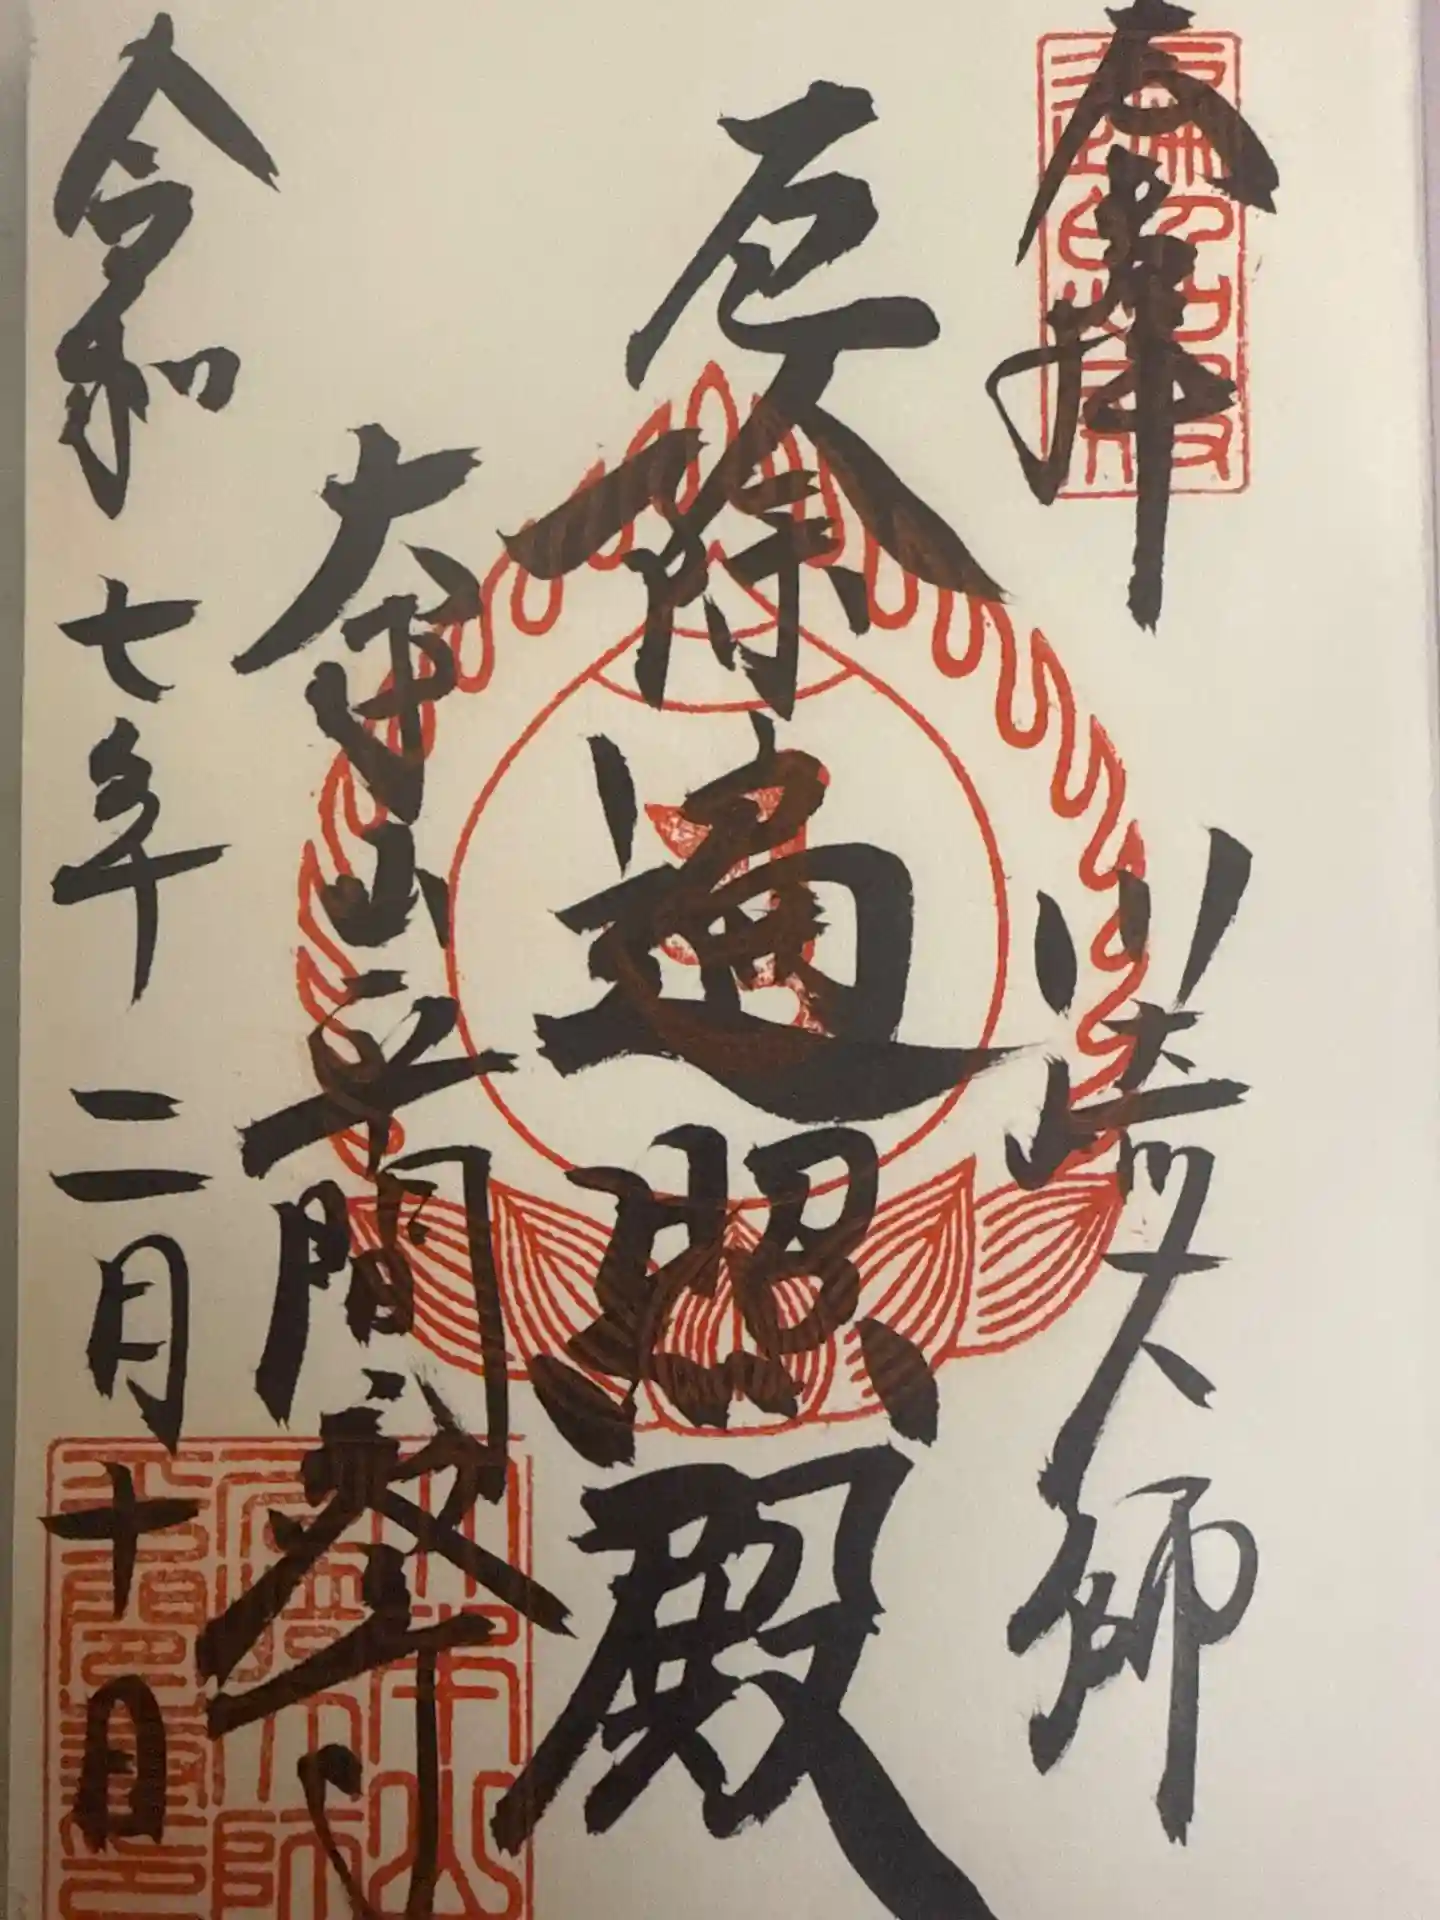 奉拝
川崎大師
厄除遍照殿
大本山平間寺
令和七年二月十日